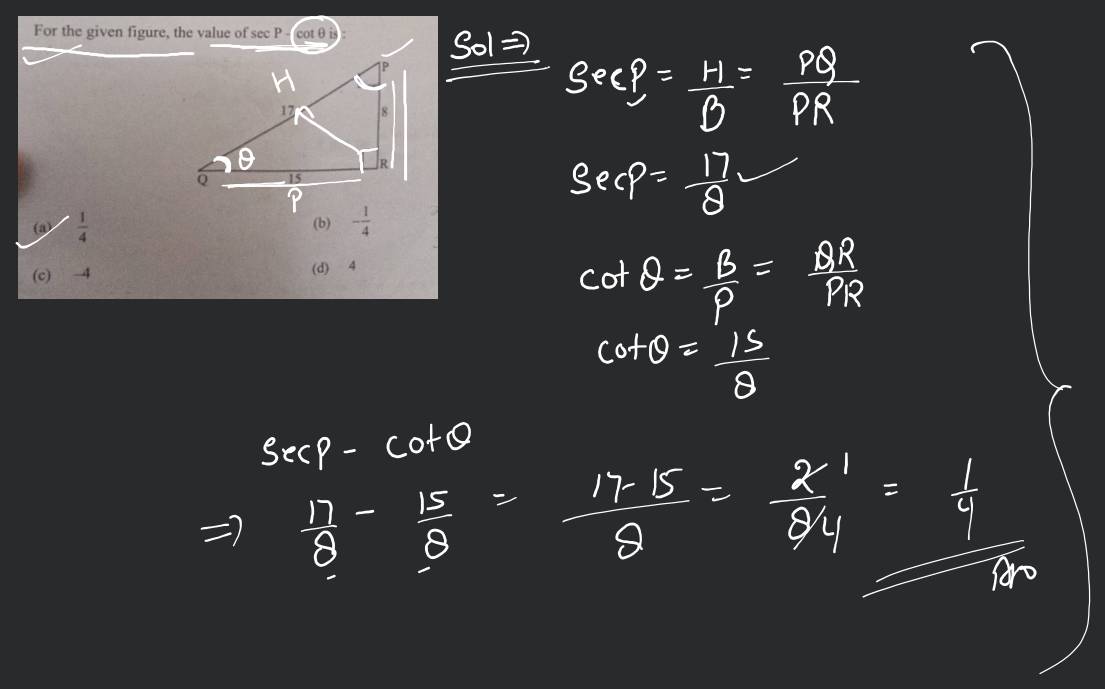 For the given figure, the value of sec P - cot θ is:
Sol ⇒
P
H
17
8
θ
Q
15
R
P
(a) 1/4
(b) -1/4
(c) -4
(d) 4
SecP = H/B = PQ/PR
SecP = 17/8
cot θ = B/P = QR/PR
cotθ = 15/8
secp - cotθ
⇒ 17/8 - 15/8 = 17-15/8 = 2 1/8 4 = 1/4